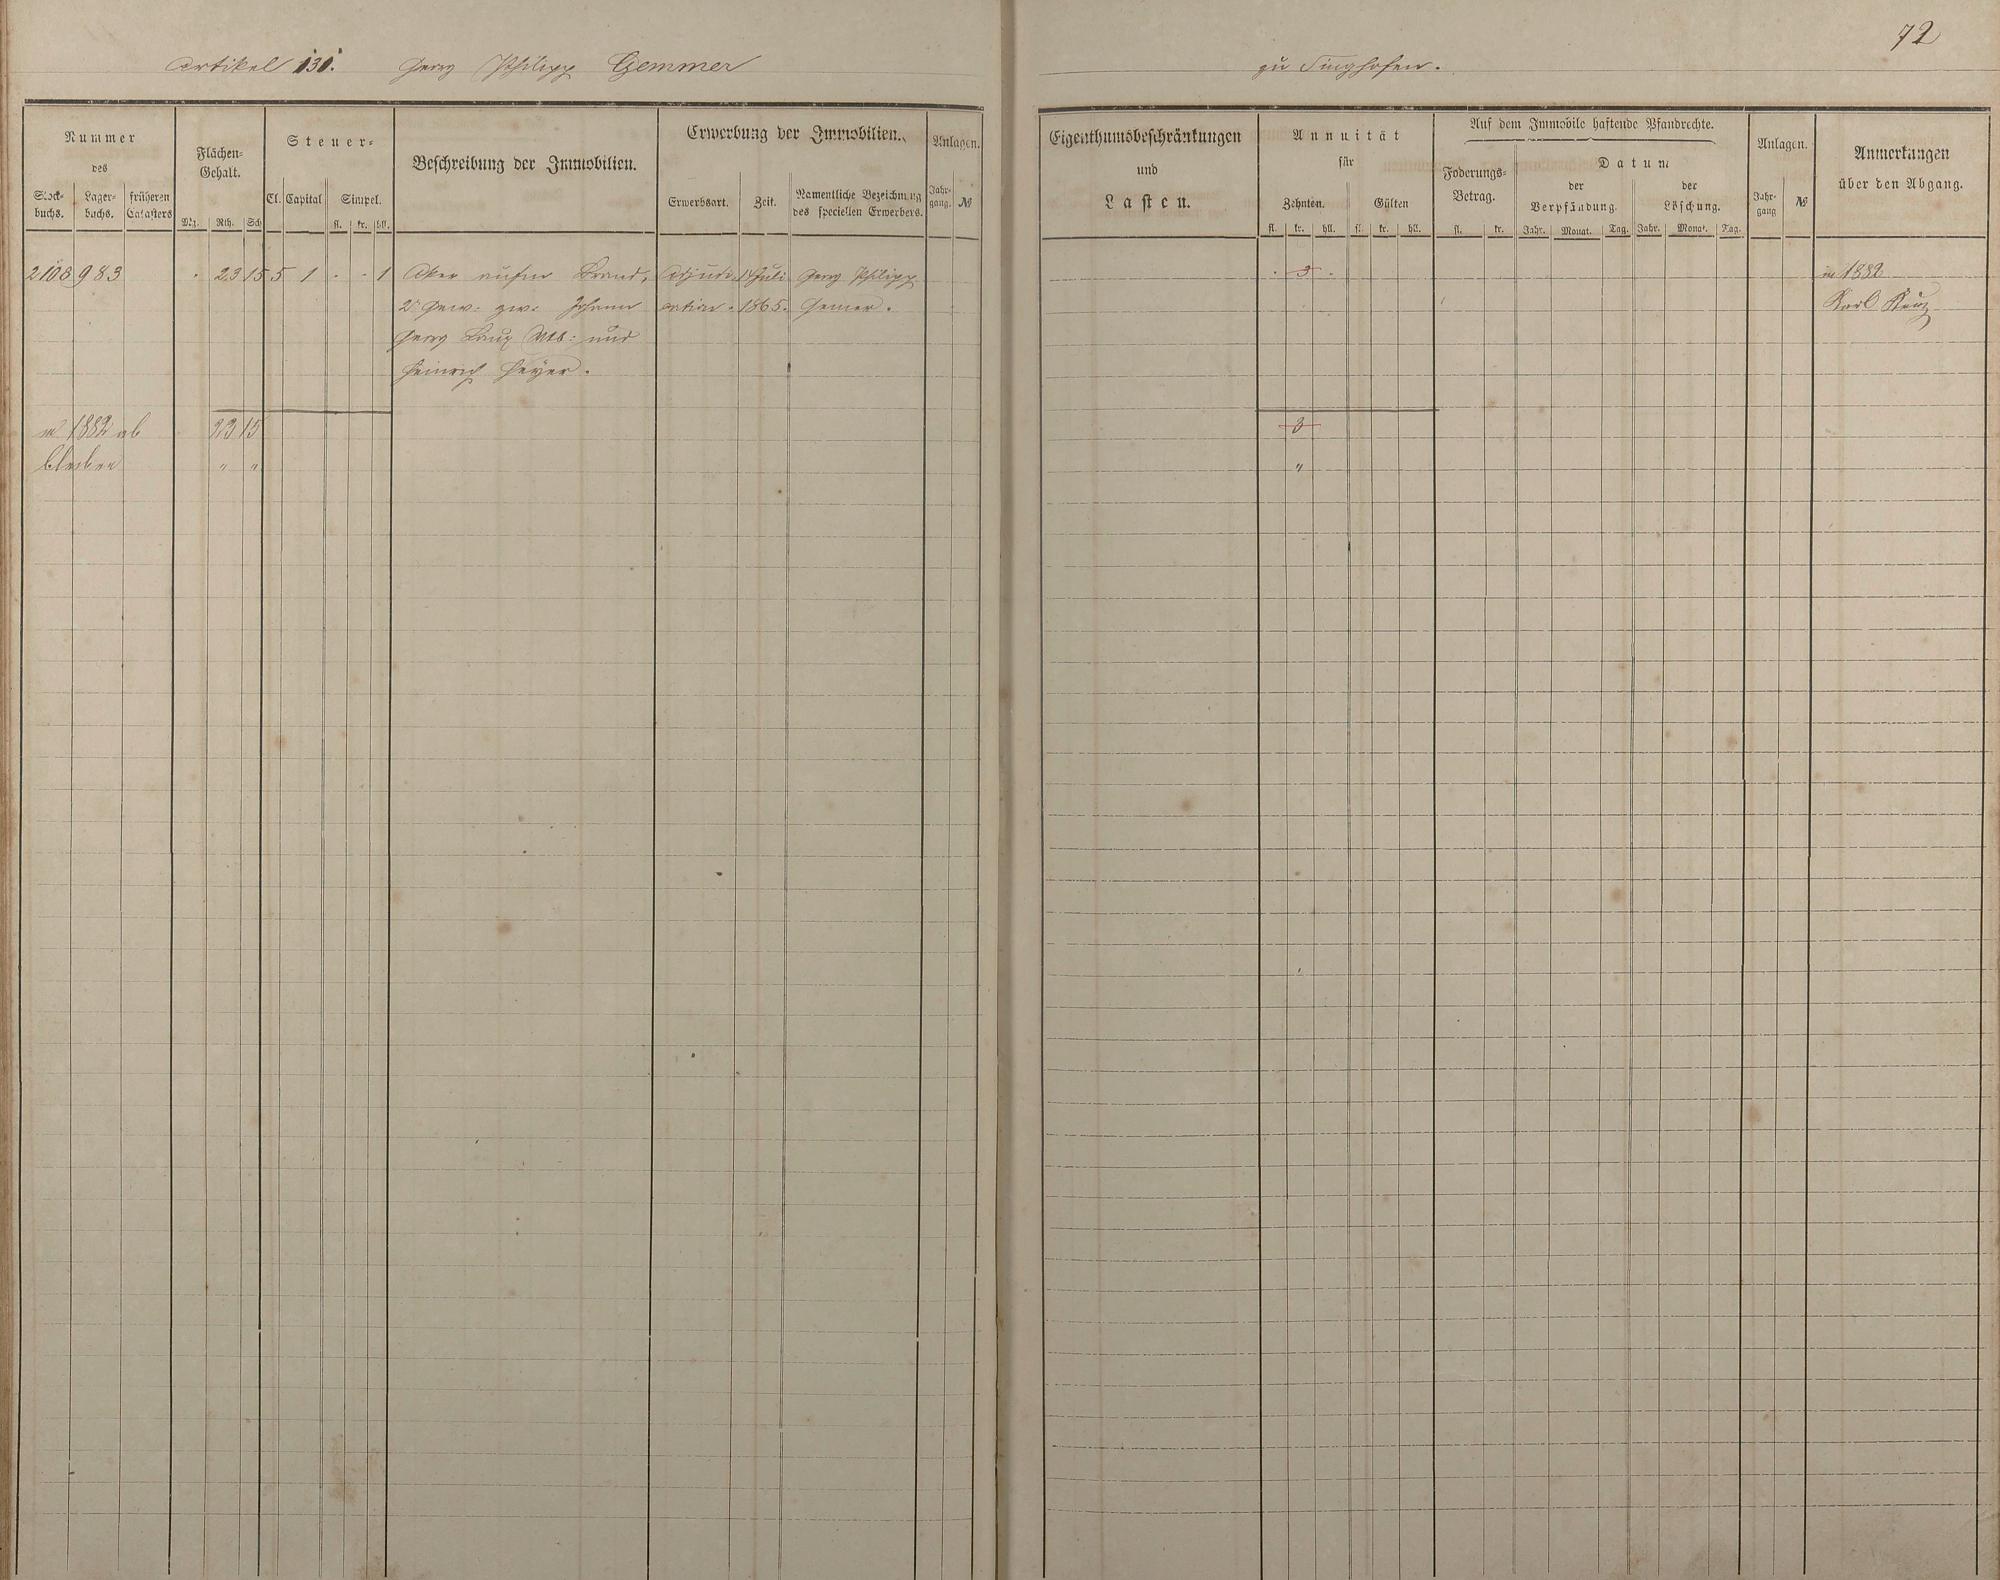 72
Artikel 131. Georg Philipp Gemmer zu Singhofen.
Nummer
des
Stock-
buchs.
Lager-
buchs.
früheren
Catasters
Flächen-
Gehalt.
Mg. Rth. Sch
Steuer-
Cl. Capital Simpel.
fl. kr. hll.
Beschreibung der Immobilien.
Erwerbung der Immobilien.
Erwerbsart. Zeit.
Namentliche Bezeichnung
des speciellen Erwerbers.
Anlagen.
Jahr-
gang. №
Eigenthumsbeschränkungen
und
Lasten.
Annuität
für
Zehnten. Gülten
fl. kr. hll. fl. kr. hll.
Auf dem Immobile haftende Pfandrechte.
Foderungs-
Betrag.
fl. kr.
Datum
der
Verpfändung.
Jahr. Monat. Tag.
der
Löschung.
Jahr. Monat. Tag.
Anlagen.
Jahr-
gang №
Anmerkungen
über den Abgang.
2108 983 - 23 15 5 1 - - 1 Acker aufm Brand, Adjudi- 14 Juli Georg Philipp - 3 - in 1882
2r Gew. zw. Johann cation. 1865. Gemer. Karl
Georg und
Heinrich Heyer.
in 1882 ab 23 15 3
bleiben " " "